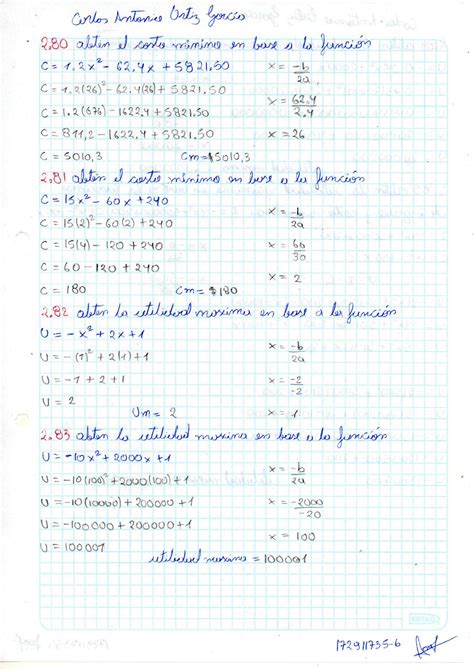 Carlos Antonio Ortiz García
2.80 obten el costo mínimo en base a la función
C = 1,2x² - 62,4x + 5821.50 x = -b/2a
C = 1.2(26)² - 62.4(26) + 5821.50
x = 62,4/2,4
C = 1.2(676) - 1622,4 + 5821.50
C = 811,2 - 1622,4 + 5821.50 x = 26
C = 5010,3 Cm = $5010,3
2.81 obten el costo mínimo en base a la función
C = 15x² - 60x + 240 x = -b/2a
C = 15(2)² - 60(2) + 240
C = 15(4) - 120 + 240 x = 60/30
C = 60 - 120 + 240
x = 2
C = 180 Cm = $180
2.82 obten la utilidad maxima en base a la función
U = -x² + 2x + 1
x = -b/2a
U = -(1)² + 2(1) + 1
U = -1 + 2 + 1 x = -2/-2
U = 2
Um = 2 x = 1
2.83 obten la utilidad maxima en base a la función
U = -10x² + 2000x + 1
x = -b/2a
U = -10(100)² + 2000(100) + 1
U = -10(10000) + 200000 + 1 x = -2000/-20
U = -100000 + 200000 + 1
x = 100
U = 100001
utilidad maxima = 100001
172911735-6